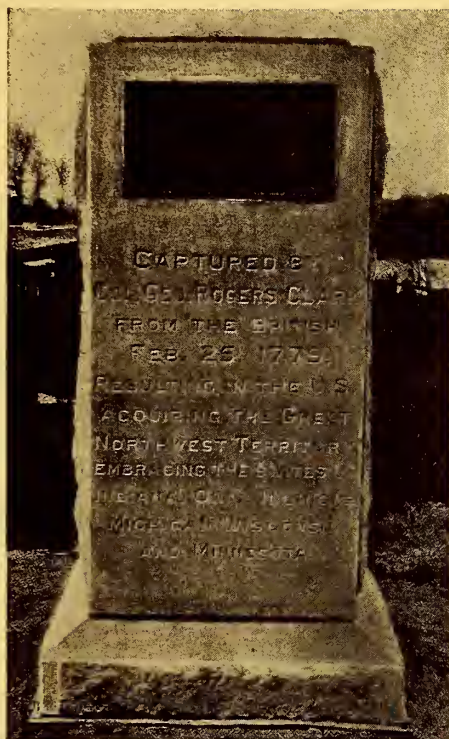 CAPTURED BY
COL. GEO. ROGERS CLARK
FROM THE BRITISH
FEB. 25 1779.
RESULTING IN THE U.S.
ACQUIRING THE GREAT
NORTHWEST TERRITORY
EMBRACING THE STATES OF
INDIANA, OHIO, ILLINOIS
MICHIGAN, WISCONSIN
AND MINNESOTA